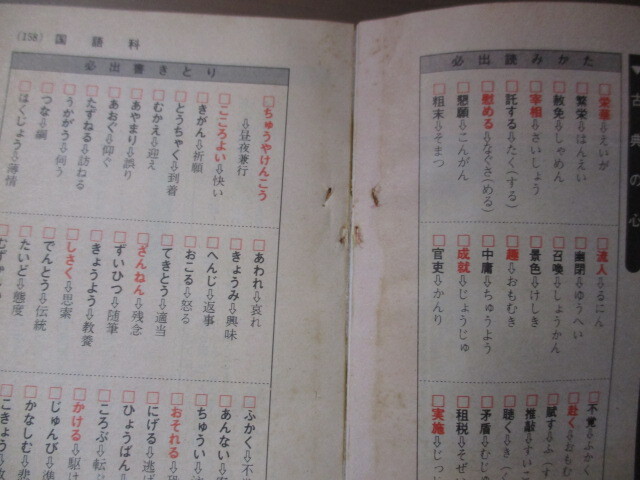 ▼古典の心
必出読みかた
栄華⇨えいが
繁栄⇨はんえい
赦免⇨しゃめん
宰相⇨さいしょう
託する⇨たく(する)
慰める⇨なぐさ(める)
懇願⇨こんがん
粗末⇨そまつ
流人⇨るにん
幽閉⇨ゆうへい
召喚⇨しょうかん
景色⇨けしき
趣⇨おもむき
中庸⇨ちゅうよう
成就⇨じょうじゅ
官吏⇨かんり
不覚⇨ふかく
赴く⇨おもむ
賦す⇨ふ(す
推敲⇨すいこ
聴く⇨き(く
矛盾⇨むじゅ
租税⇨そぜい
実施⇨じっし
(158) 国語科
必出書きとり
ちゅうやけんこう
⇨昼夜兼行
こころよい⇨快い
きがん⇨祈願
とうちゃく⇨到着
むかえ⇨迎え
あやまり⇨誤り
あおぐ⇨仰ぐ
たずねる⇨訪ねる
うかがう⇨伺う
つな⇨綱
はくじょう⇨薄情
あわれ⇨哀れ
きょうみ⇨興味
へんじ⇨返事
おこる⇨怒る
てきとう⇨適当
ざんねん⇨残念
ずいひつ⇨随筆
きょうよう⇨教養
しさく⇨思索
でんとう⇨伝統
たいど⇨態度
ふかく⇨不
あんない⇨
ちゅうい⇨
おそれる⇨
にげる⇨逃げ
ひょうばん⇨
ころぶ⇨転
かける⇨駆け
じゅんび⇨準
かなしむ⇨悲
こきょう⇨